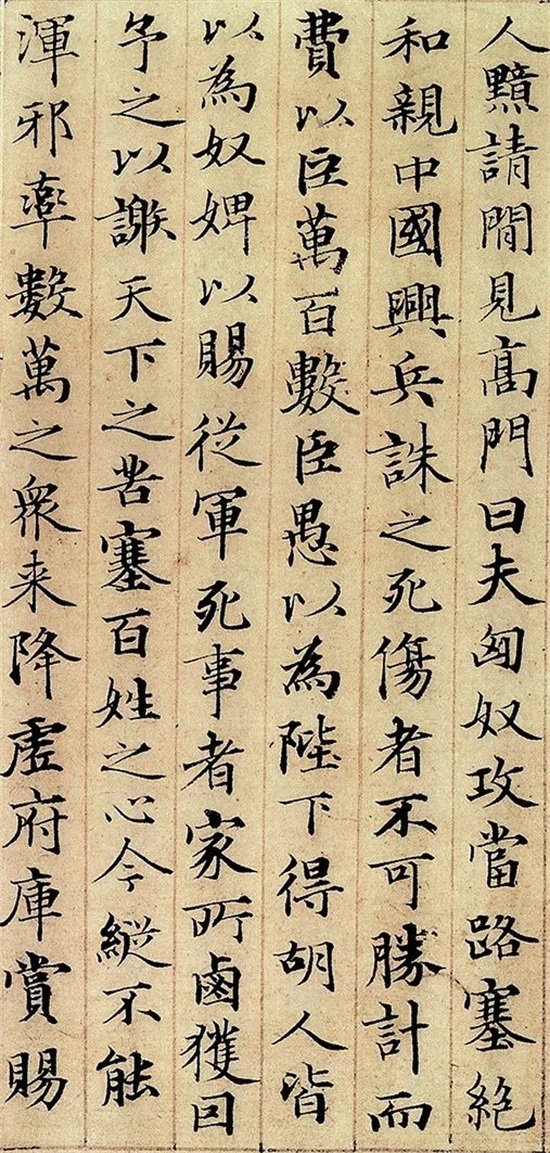 人黯請閒見高門曰夫匈奴攻當路塞絶
和親中國興兵誅之死傷者不可勝計而
費以臣萬百數臣愚以為陛下得胡人皆
以為奴婢以賜從軍死事者家所鹵獲回
予之以謝天下之苦塞百姓之心今縱不能
渾邪率數萬之衆来降虛府庫賞賜